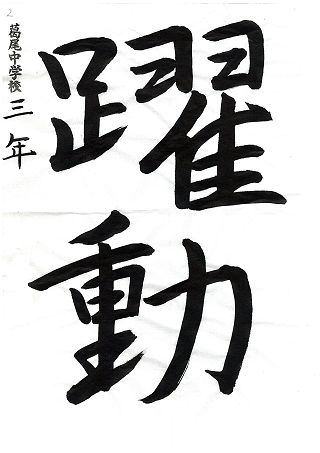 躍動
葛尾中学校 三年
2